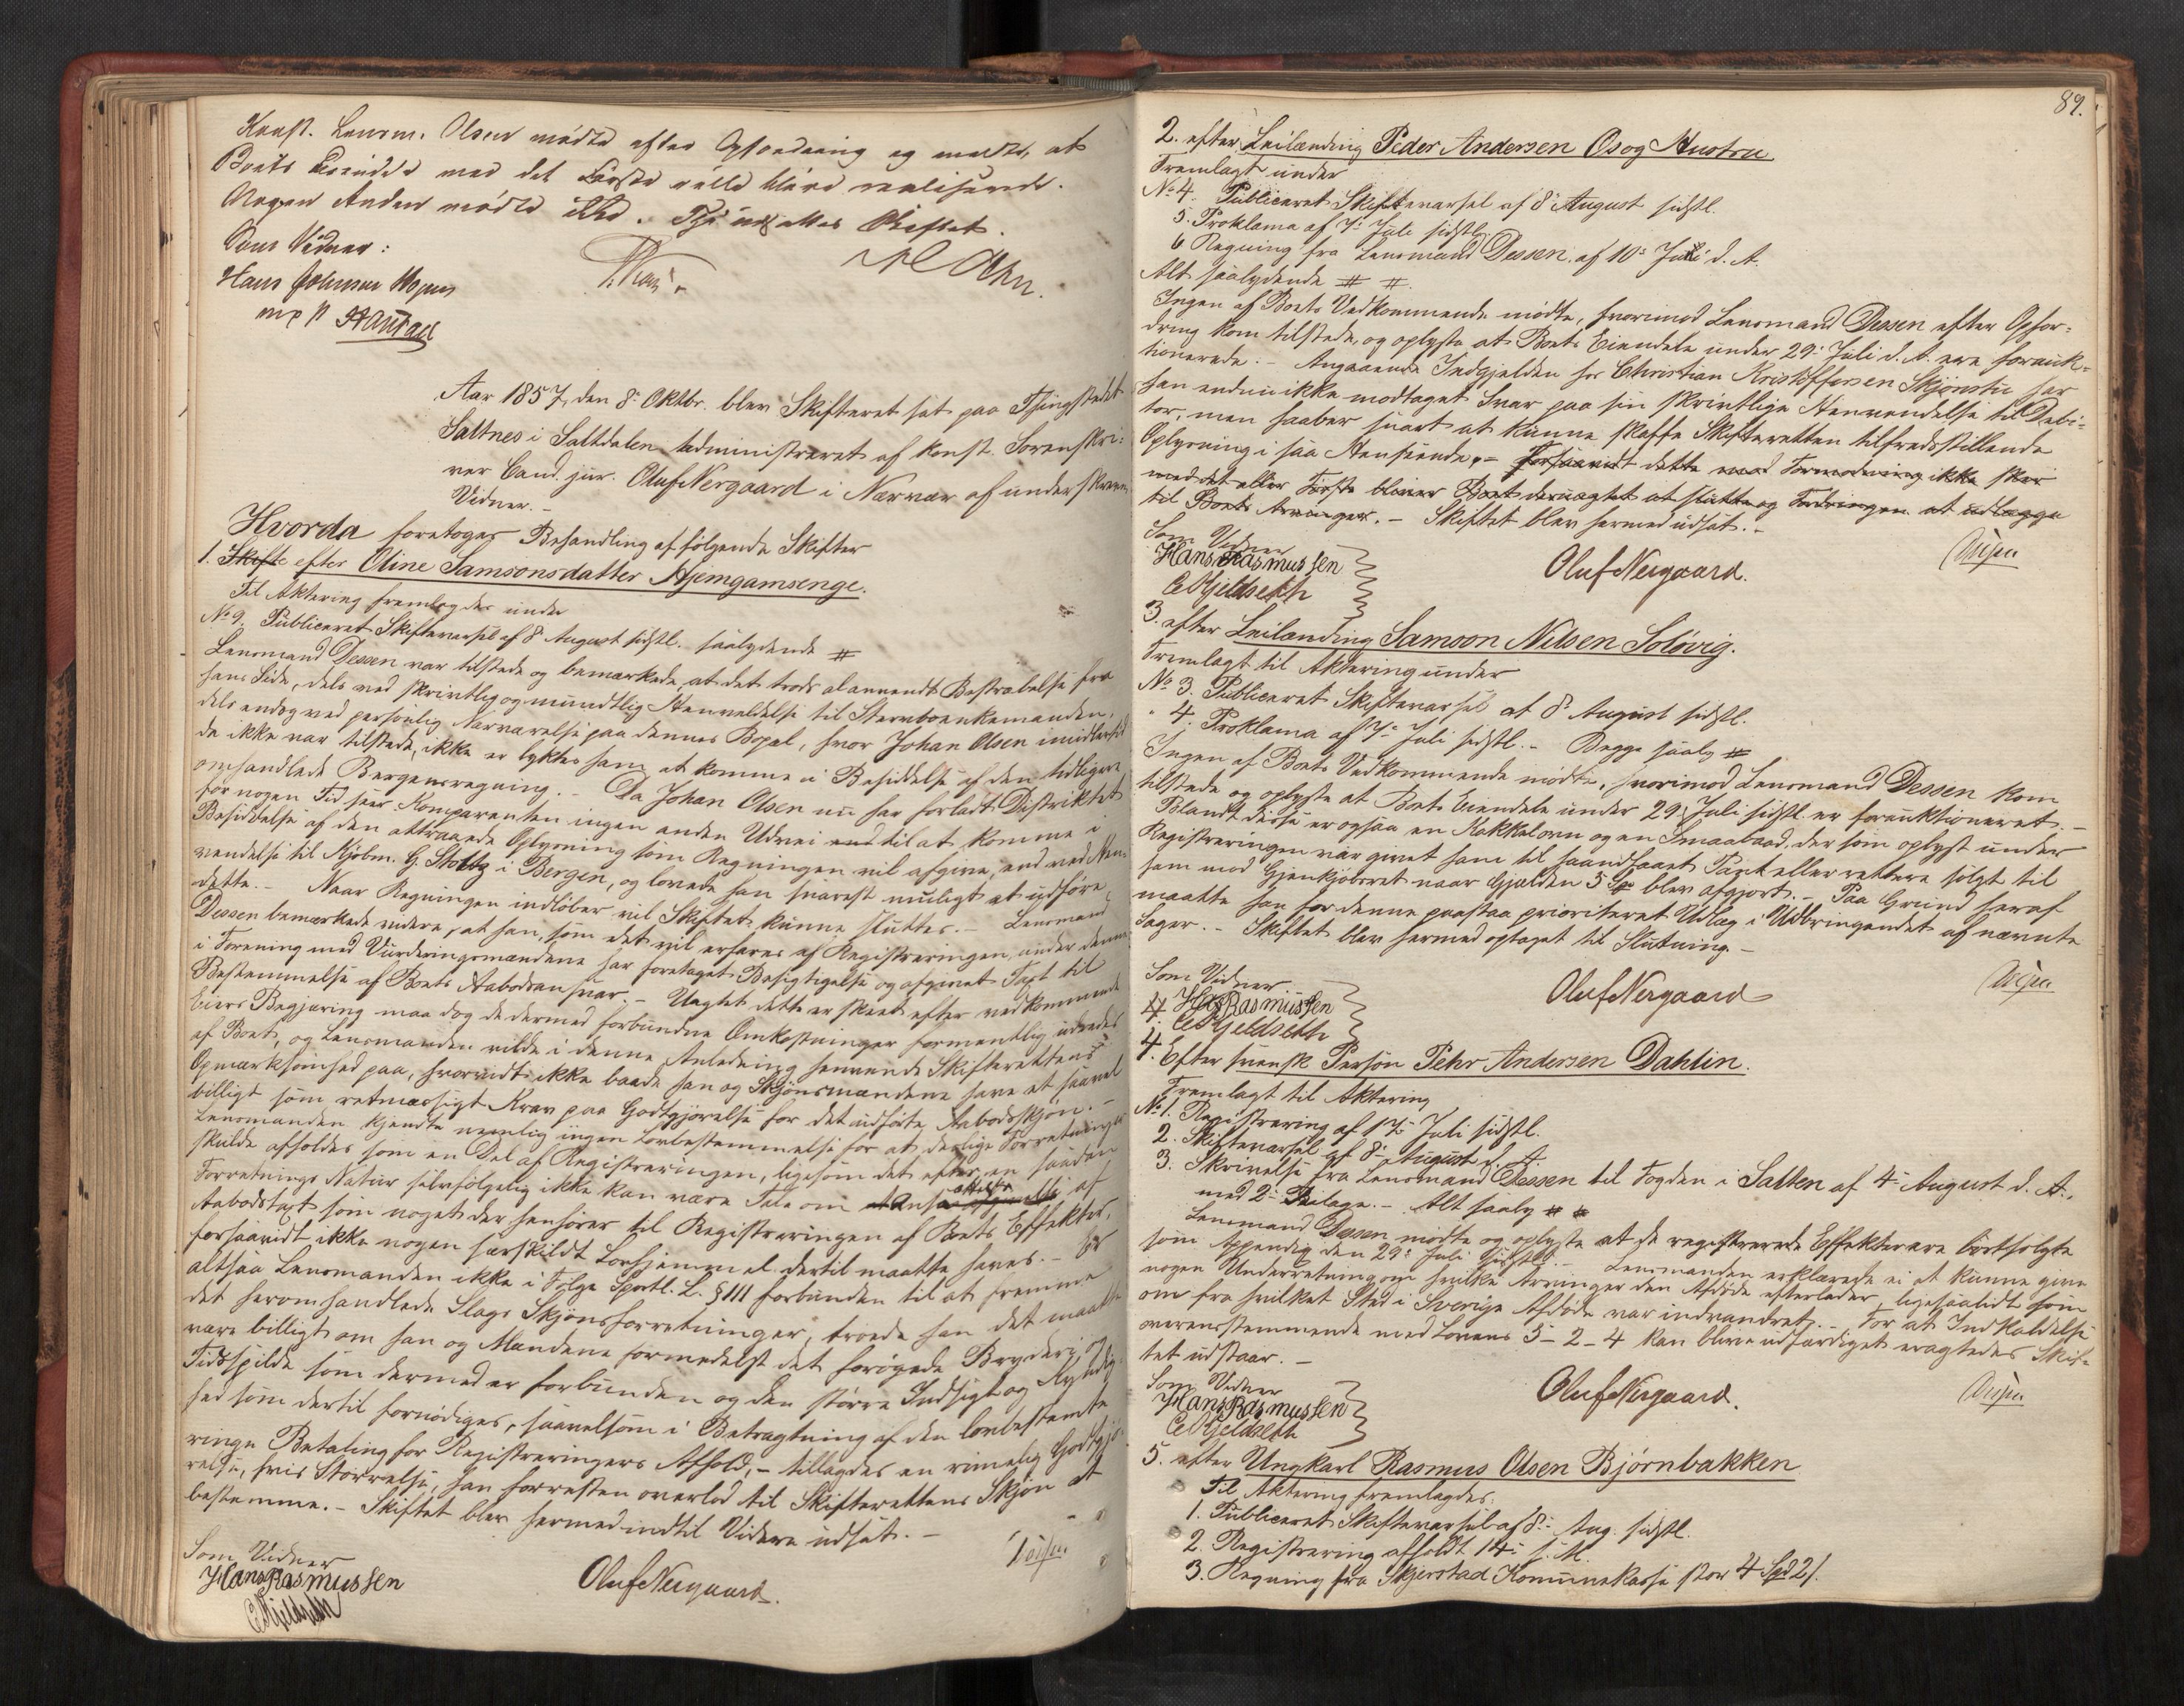 Konst. Lensm. Olsen mødte efter Opfordring og mældte, at
Boets Eiendele med det Første vilde blive realiserede.
Nogen Anden mødte ikke. Thi udsattes Skiftet.
Som Vidner:
Hans Johnsen
m p P
Aar 1857, den 8de Oktbr. blev Skifteret sat paa Thingstedet
Saltnes i Saltdalen administreret af konst. Sorenskri-
ver Cand. jur. Oluf Nergaard i Nærvær af underskrevne
Vidner. –
Hvorda foretoges Behandling af følgende Skifter
1. Skifte efter Oline Samsonsdatter Hjemgamsenge.
Til Aktering fremlagdes under
No 9. Publiceret Skiftevarsel af 8 August sidstl. saalydende #
Lensmand Dessen var tilstede og bemærkede, at det trods al anvendt Bestræbelse fra
hans Side, dels ved skriftlig og mundtlig Henvendelse til Stervboenkemanden,
dels endog ved personlig Nærværelse paa dennes Bopæl, hvor Johan Olsen imidlertid
da ikke var tilstede, ikke er lykkes ham at komme i Besiddelse af den tidligere
omhandlede Bergensregning. – Da Johan Olsen nu har forladt Distriktet
for nogen Tid seer Komparenten ingen anden Udvei end til at komme i
Besiddelse af den attraaede Oplysning som Regningen vil afgive, end ved Hen-
vendelse til Kjøbm. G. Stoltz i Bergen, og lovede han snarest muligt at udføre
dette. – Naar Regningen indløber vil Skiftet kunne sluttes. – Lensmand
Dessen bemærkede videre, at han, som det vil erfares af Registreringen, under denne
i Forening med Vurderingsmændene har foretaget Besigtigelse og afgivet Taxt til
Bestemmelse af Boets Aabodsansvar. – Uagtet dette er skeet efter vedkommende
Eiers Begjæring maa dog de dermed forbundne Omkostninger formentlig udredes
af Boet, og Lensmanden vilde i denne Anledning henvende Skifterettens
Opmærksomhed paa, hvorvidt ikke baade han og Skjønsmændene have et saavel
billigt som retmæssigt Krav paa Godtgjørelse for det udførte Aabodsskjøn. –
Lensmanden kjendte nemlig ingen Lovbestemmelse for at deslige Forretninger
skulde afholdes som en Del af Registreringen, ligesom det efter en saadan
Forretnings Natur selvfølgelig ikke kan være Tale om at ansee af
Aabodstaxt som noget der henhører til Registreringen af Boets Effekter,
forsaavidt ikke nogen særskildt Lovhjemmel dertil maatte haves. – Er
altsaa Lensmanden ikke i Følge Sportl. L. § 111 forbunden til at fremme
det heromhandlede Slags Skjønsforretninger, troede han det maatte
være billigt om han og Mændene formedelst det forøgede Bryderi og
Tidsspilde som dermed er forbunden og den større Indsigt og Kyndig-
hed som dertil fornødiges, saavelsom i Betragtning af den lovbestemte
ringe Betaling for Registreringers Afhold, – tillagdes en rimelig Godtgjø-
relse, hvis Størrelse, han forresten overlod til Skifterettens Skjøn at
bestemme. – Skiftet blev hermed indtil Videre udsat. –
Som Vidner
Hans Rasmussen
Oluf Nergaard.
Dessen
89.
2. efter Leilænding Peder Andersen Osog Austru
Fremlagt under
No 4. Publiceret Skiftevarsel af 8de August sidstl.
5. Proklama af 7de Juli sidstl.
6 Regning fra Lensmand Dessen af 10de Juli d. A.
Alt saalydende # #.
Ingen af Boets Vedkommende mødte, hvorimod Lensmand Dessen efter Opfor-
dring kom tilstede og oplyste at Boets Eiendele under 29de Juli d. A. ere forauk-
tionerede. – Angaaende Indgjelden hos Christian Kristoffersen Skjønstu har
han endnu ikke modtaget Svar paa sin skriftlige Henvendelse til Debi-
tor, men haaber snart at kunne skaffe Skifteretten tilfredsstillende
Oplysning i saa Henseende. – forsaavidt dette mod Formodning ikke sker
med det aller Første bliver Boet desuagtet at slutte og Fordringen at udlægge
til Boets Arvinger. – Skiftet blev hermed udsat. –
Som Vidner
Hans Rasmussen
Oluf Nergaard.
Dessen
3. efter Leilænding Samson Nilsen Soløvig.
Fremlagt til Aktering under
No 3. Publiceret Skiftevarsel af 8 August sidstl.
" 4. Proklama af 7de Juli sidstl. – Begge saaly #
Ingen af Boets Vedkommende mødte, hvorimod Lensmand Dessen kom
tilstede og oplyste at Boets Eiendele under 29 Juli sidstl. er forauktioneret. –
Blandt disse er ogsaa en Kakkelovn og en Smaabaad, der som oplyst under
Registreringen var givet ham til haandfaaet Pant eller rettere solgt til
ham mod Gjenkjøbsret naar Gjælden 5 Spd blev afgjort. – Paa Grund heraf
maatte han for denne paastaa prioriteret Udlæg i Udbringendet af nævnte
Sager. – Skiftet blev hermed optaget til Slutning. –
Som Vidner
Hans Rasmussen
Oluf Nergaard
Dessen
4. Efter svensk Person Pehr Andersen Dahlin.
Fremlagt til Aktering
No 1. Registrering af 17de Juli sidstl.
2. Skiftevarsel af 8de August d. A.
3. Skrivelse fra Lensmand Dessen til Fogden i Salten af 4de August d. A.,
med 2de Bilage. – Alt saaly # #
Lensmand Dessen mødte og oplyste at de registrerede Effekter ere bortsolgte
som Appendix den 29de Juli sidstl. – Lensmanden erklærede ei at kunne give
nogen Underretning om hvilke Arvinger den Afdøde efterlader, ligesaalidt som
om fra hvilket Sted i Sverige Afdøde var indvandret. – For at Indkaldelse
overensstemmende med Lovens 5–2–4 kan blive udfærdiget eragtedes Skif-
tet udstaar. –
Som Vidner
Hans Rasmussen
Oluf Nergaard.
Dessen
5. efter Ungkarl Rasmus Olsen Bjørnbakken
Til Aktering fremlagdes.
1. Publiceret Skiftevarsel af 8de Aug. sidstl.
2. Registrering afholdt 14de s. M.
3. Regning fra Skjerstad Kommunekasse stor 4 Spd 2 /.